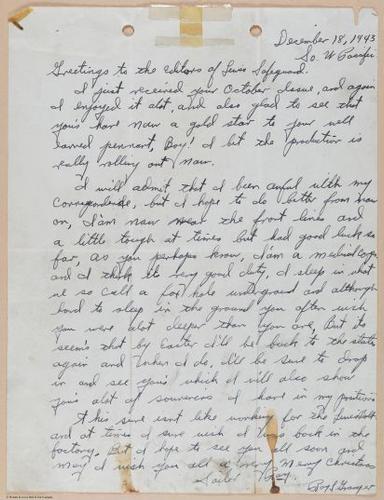 December 18, 1943
So. W Pacific
Greetings to the Editors of Lewis Safeguard.
I just received your October issue, and again
I enjoyed it alot, and also glad to see that
yous have now a gold star to your well
earned pennant, Boy! I bit the production is
really rolling out now.
I will admit that I been awful with my
correspondence, but I hope to do better from now
on, I am now near the front lines and
a little tough at times but had good luck so
far, as you perhaps know, I am a medical corps
and I think its very good duty, I sleep in what
we so call a fox hole underground and although
hard to sleep in the ground you often wish
you were alot deeper than you are, But its
seems that by Easter I'll be back to the states
again and when I do, I'll be sure to drop
in and see yous which I will also show
yous alot of souvenirs I have in my
This sure isnt like working for the
and at times I sure wish I was back in the
factory, But I hope to see you all soon and
may I wish you all a very Merry Christmas
Roy S Granger